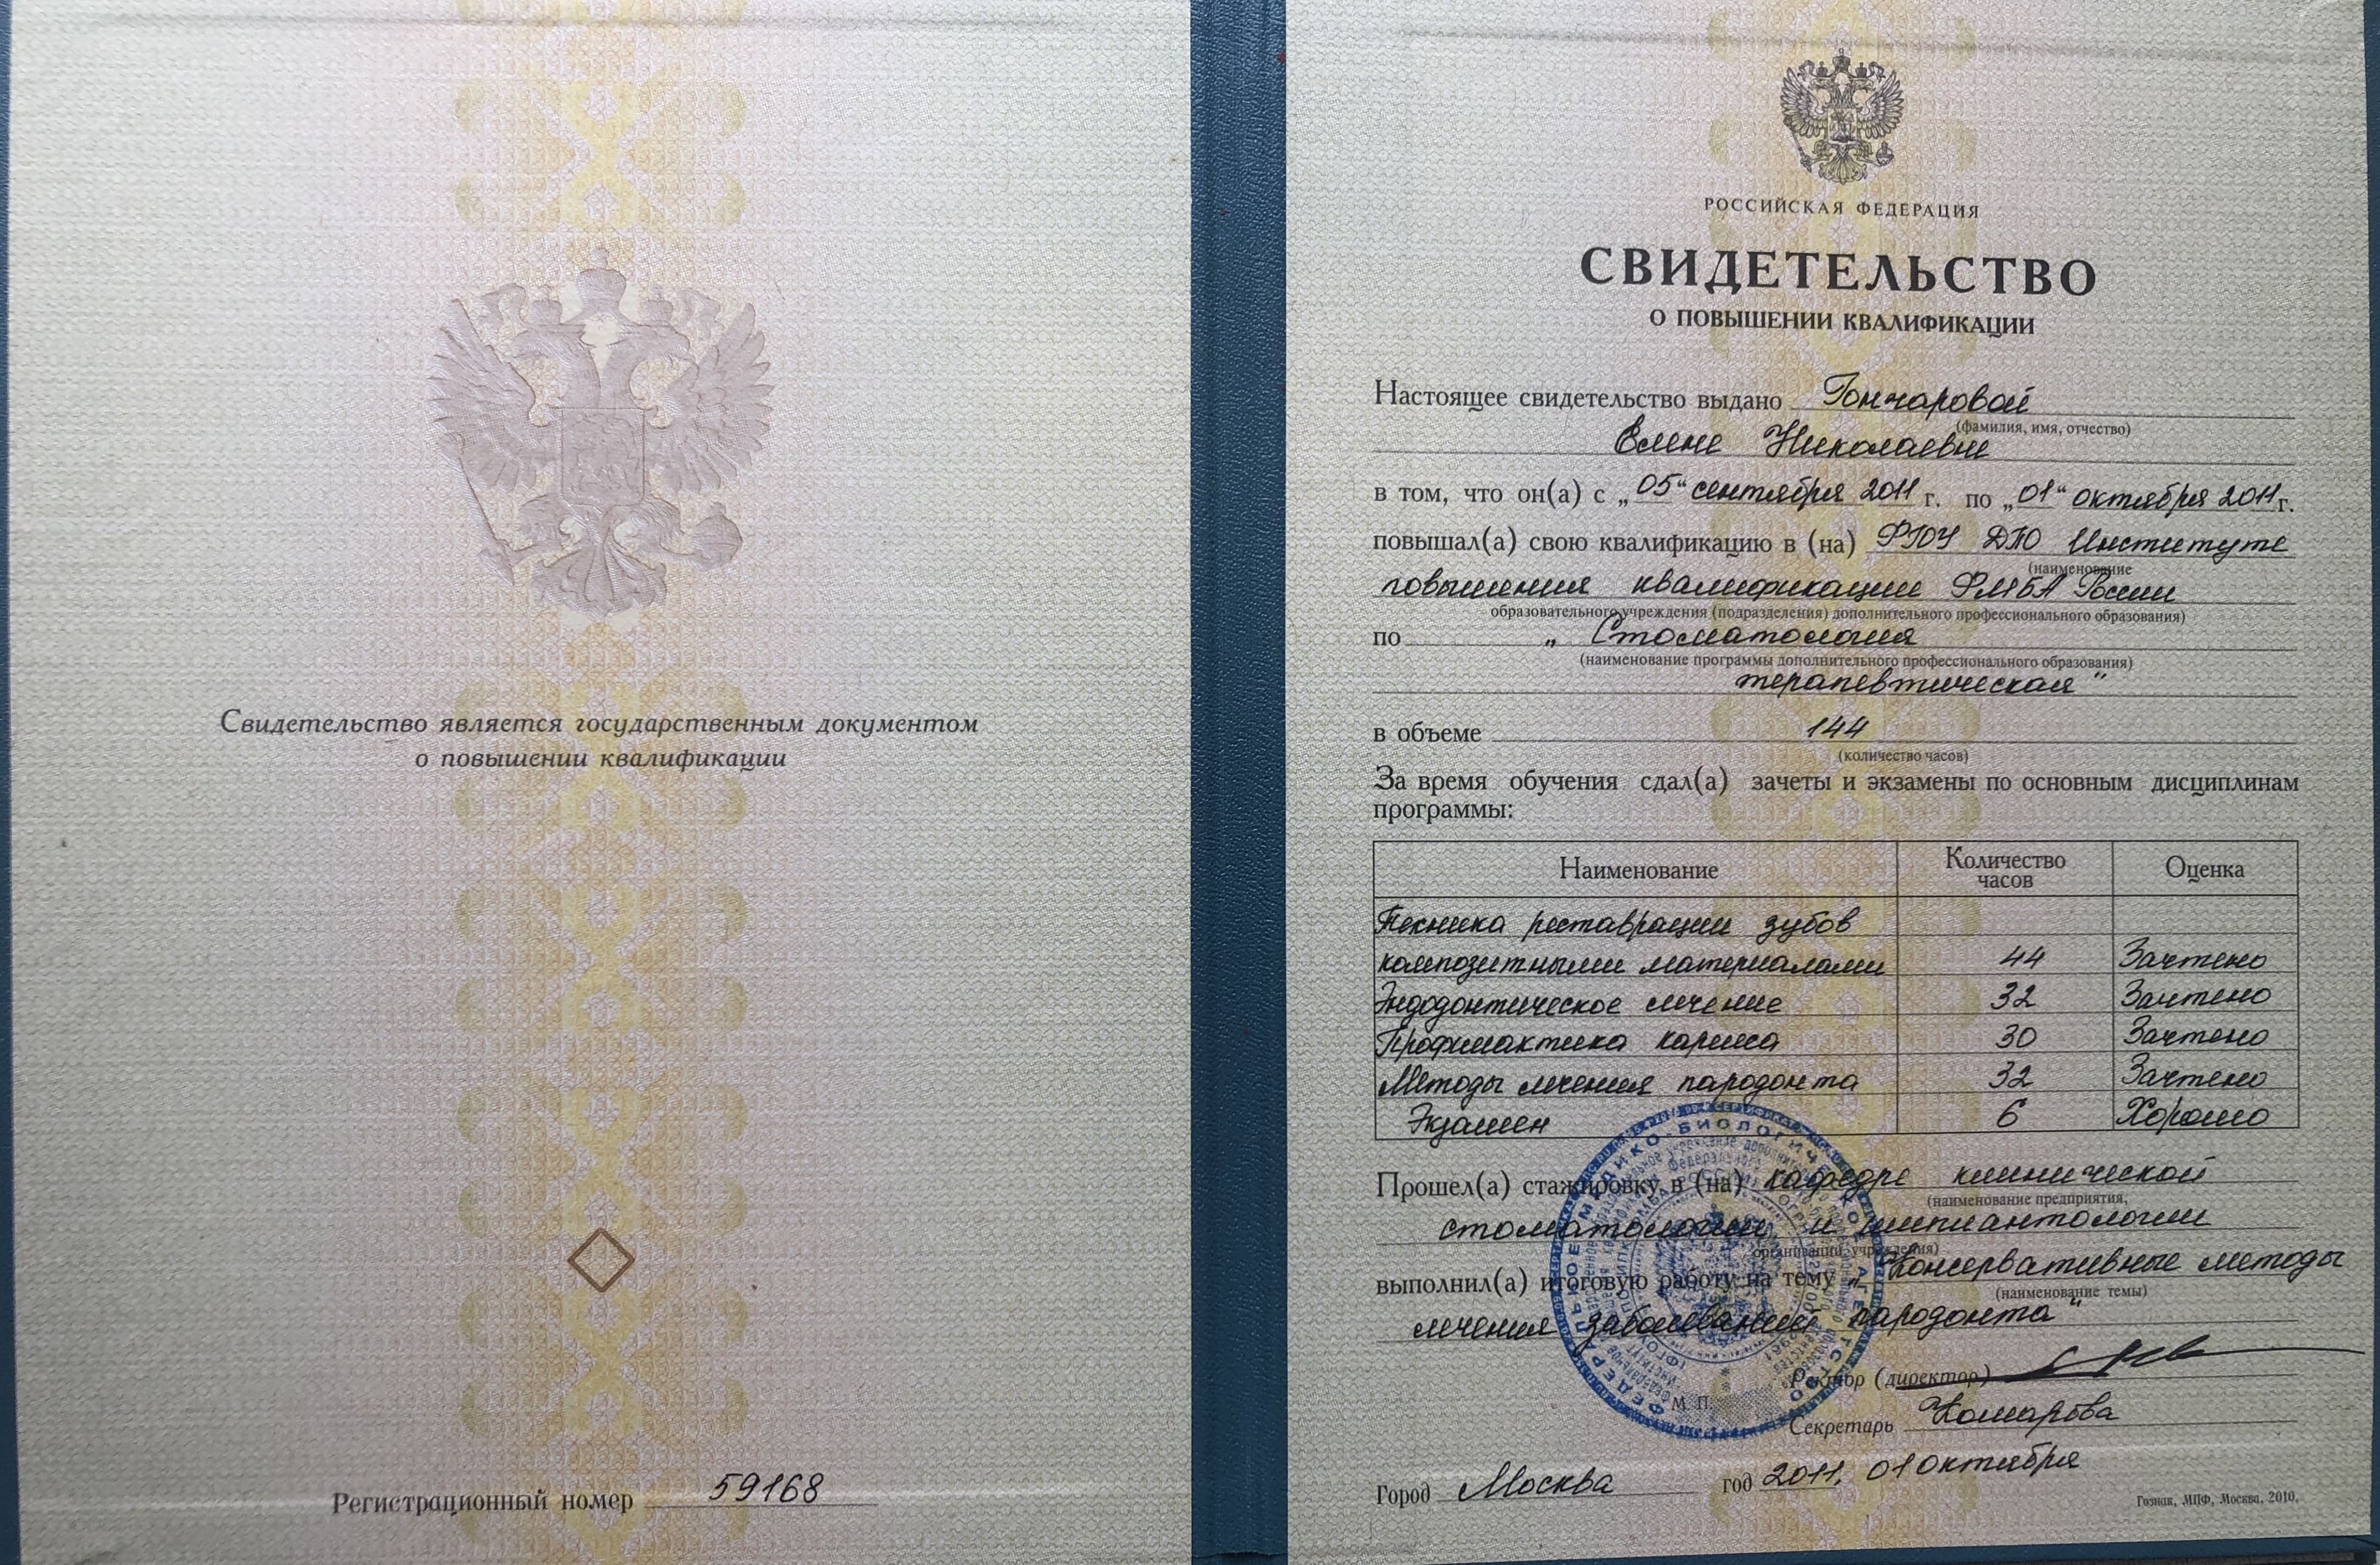 Свидетельство является государственным документом
о повышении квалификации
Регистрационный номер 59168
РОССИЙСКАЯ ФЕДЕРАЦИЯ
СВИДЕТЕЛЬСТВО
О ПОВЫШЕНИИ КВАЛИФИКАЦИИ
Настоящее свидетельство выдано Гончаровой
(фамилия, имя, отчество)
Елене Николаевне
в том, что он(а) с „05“ сентября 2011 г. по „01“ октября 2011 г.
повышал(а) свою квалификацию в (на) ФГОУ ДПО Институте
(наименование
повышения квалификации ФМБА России
образовательного учреждения (подразделения) дополнительного профессионального образования)
по „Стоматология
(наименование программы дополнительного профессионального образования)
терапевтическая"
в объеме 144
(количество часов)
За время обучения сдал(а) зачеты и экзамены по основным дисциплинам
программы:
Наименование Количество часов Оценка
Техника реставрации зубов
композитными материалами 44 Зачтено
Эндодонтическое лечение 32 Зачтено
Профилактика кариеса 30 Зачтено
Методы лечения пародонта 32 Зачтено
Экзамен 6 Хорошо
Прошел(а) стажировку в (на) кафедре клинической
(наименование предприятия,
стоматологии и имплантологии
организации, учреждения)
выполнил(а) итоговую работу на тему „Консервативные методы
(наименование темы)
лечения заболеваний пародонта"
Ректор (директор)
М. П.
Секретарь Комарова
Город Москва год 2011, 01 октября
Гознак, МПФ, Москва, 2010.